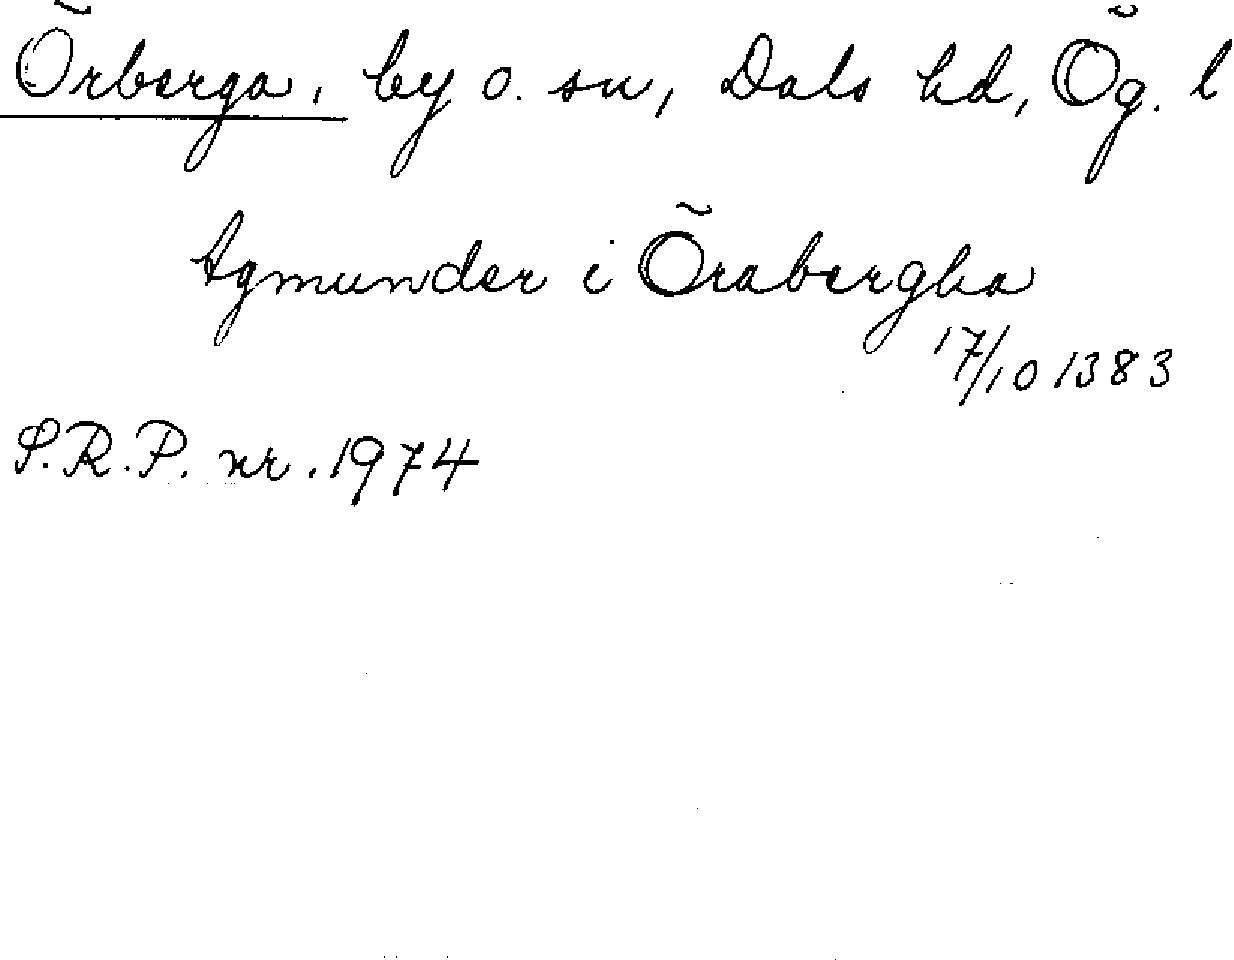 Örberga, by o. sn, Dals hd, Ög. l
Agmunder i Örabergha
17/10 1383
S.R.P. nr. 1974